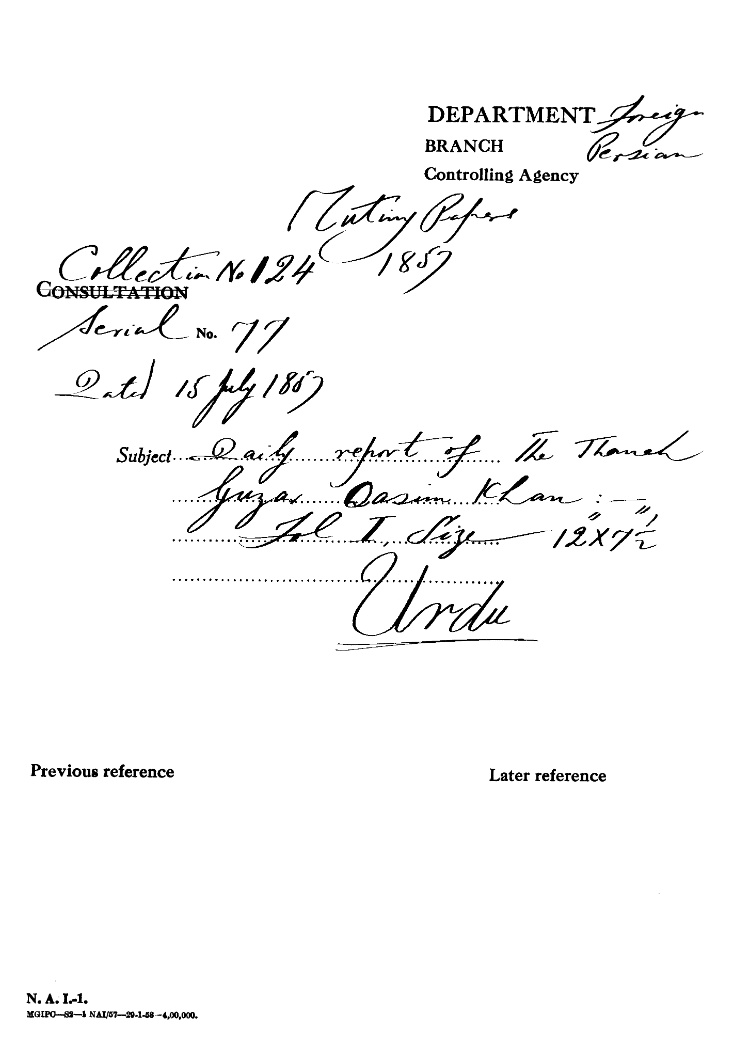 DEPARTMENT Foreign
BRANCH Persian
Controlling Agency
Mutiny Papers
1857
Collection No 124
CONSULTATION
Serial No. 77
Dated 15 July 1857
Subject Daily report of The Thanah
Guzar Qasim Khan : — —
Fol I, Size 12" X 7½"
Urdu
Previous reference
Later reference
N. A. I.-1.
MGIPO—S2—1 NAI/57—29-1-58—4,00,000.